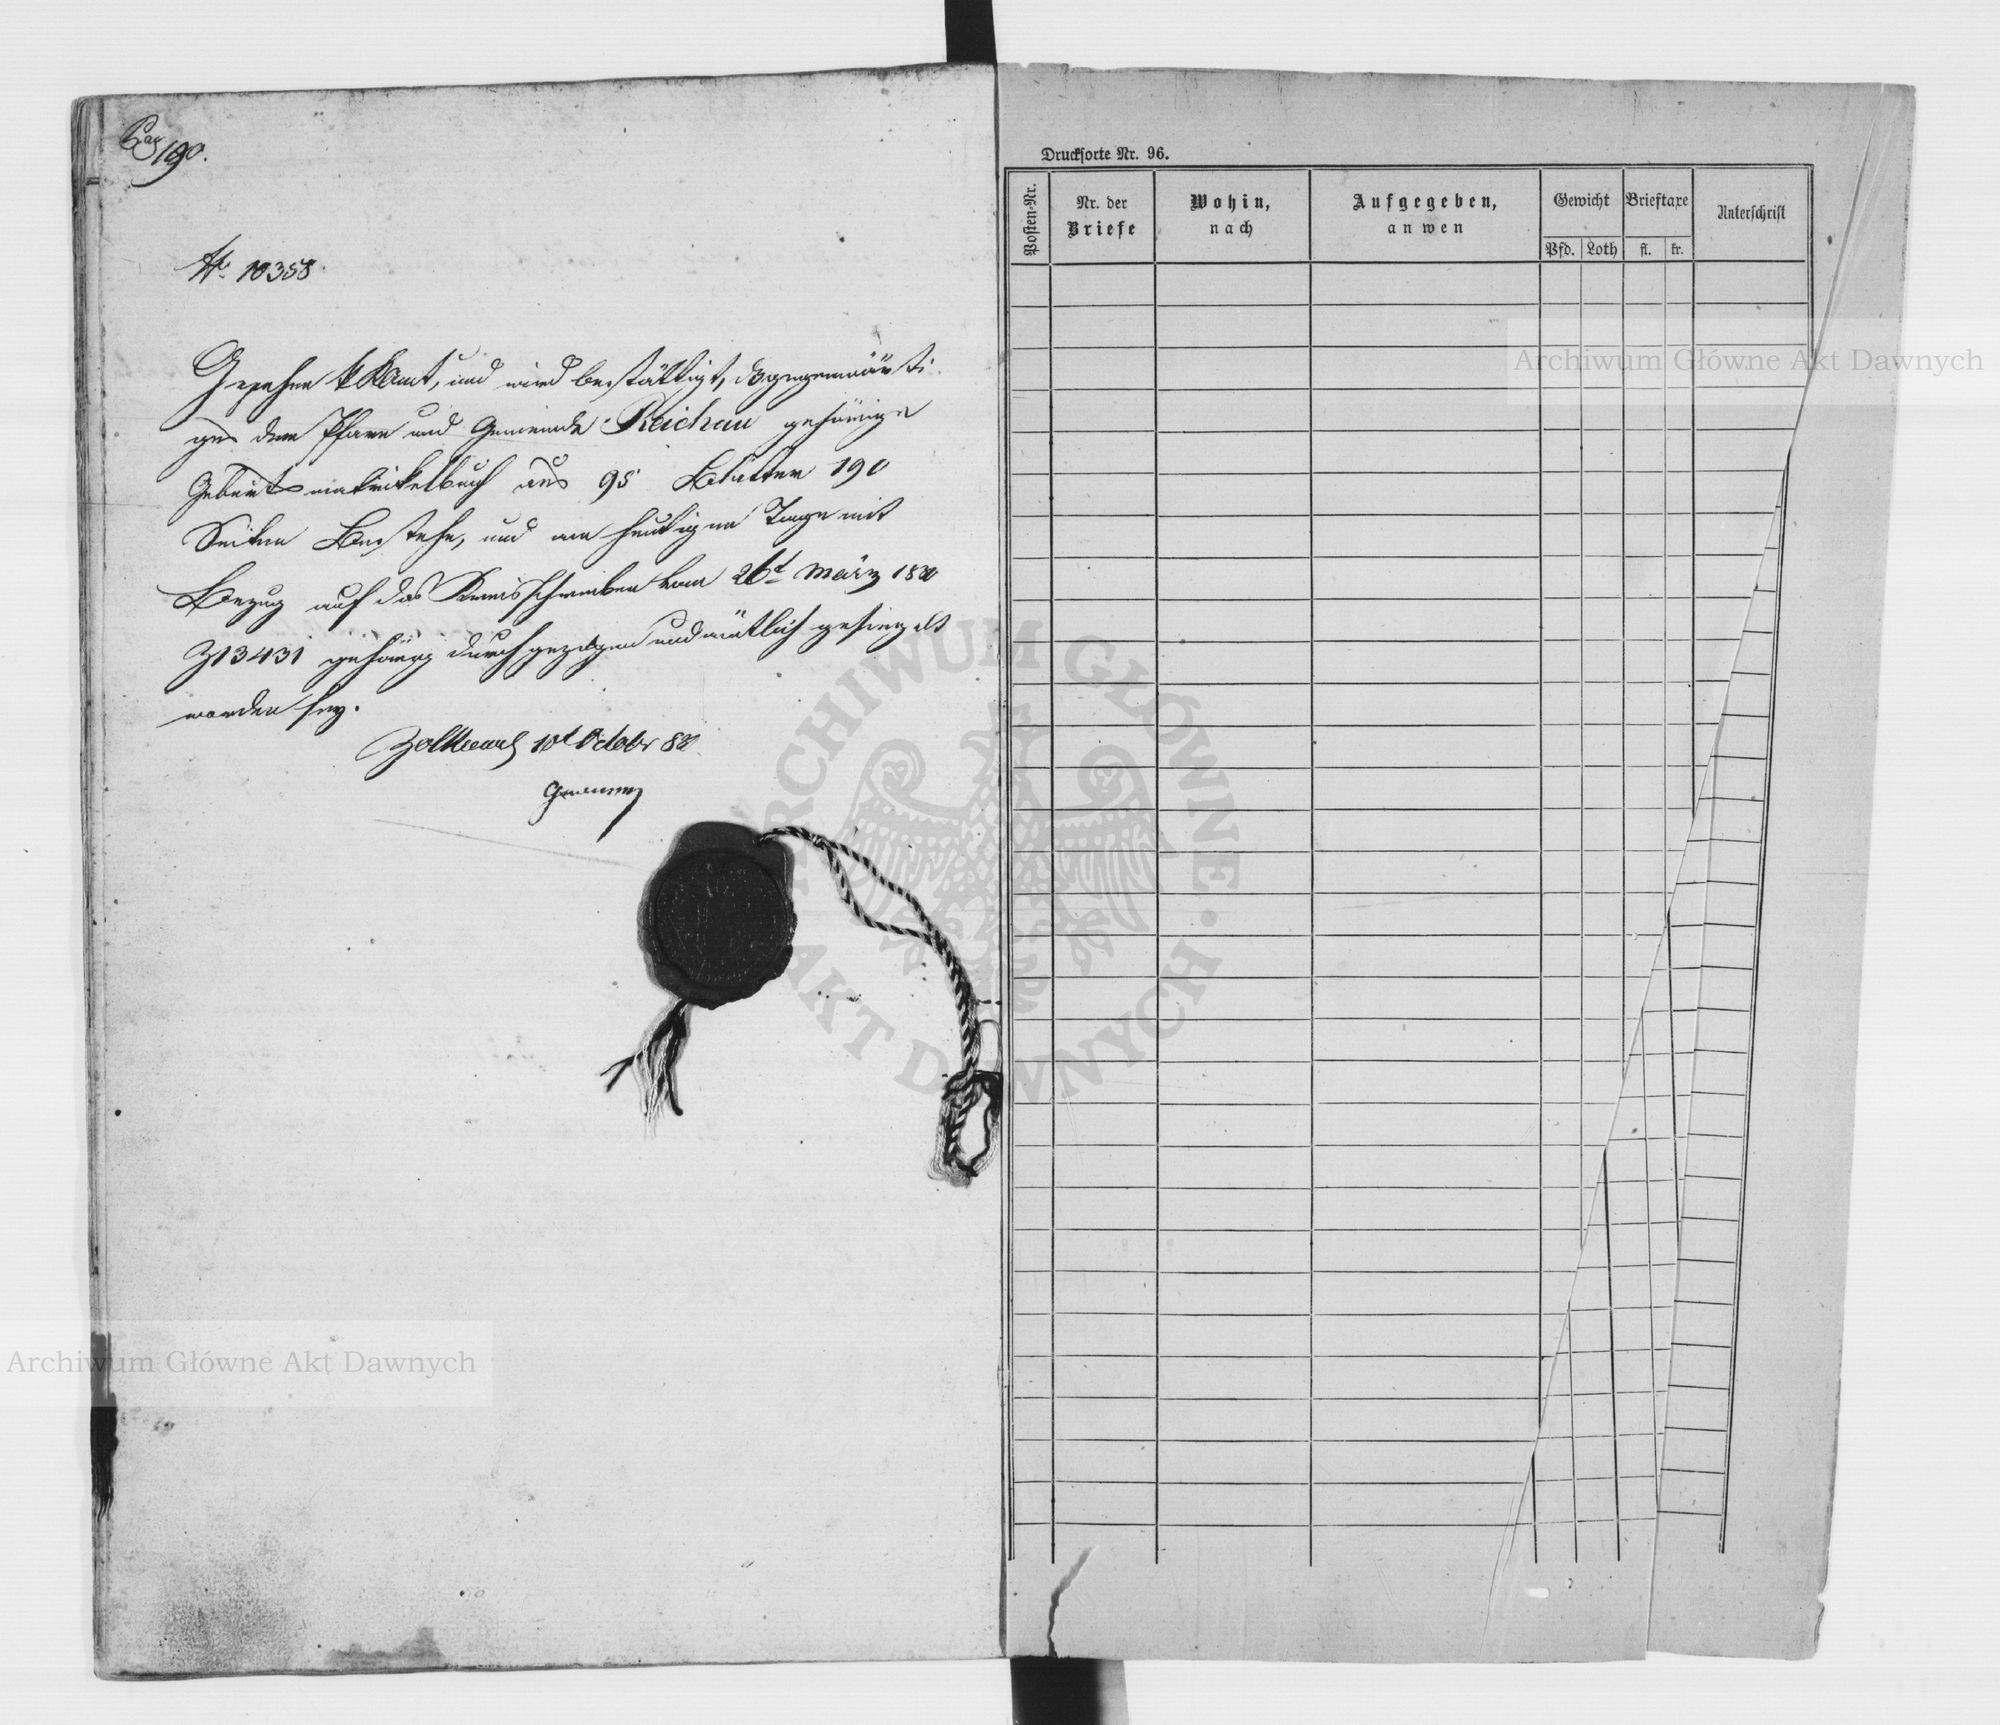 Pag 190.
No 10358.
Gesehen k Kamt, und wird bestättigt, daß gegenwärti-
ges dem Pfarr und Gemeinde Reichau gehörige
Geburts matrikelbuch aus 95 Blätter 190
Seiten Bestehe, und am heutigen Tage mit
Bezug auf das Kreisschreiben vom 26t März 18
Z 13431 gehörig durchgezogen und amtlich gesiegelt
worden sey.
10t October
Drucksorte Nr. 96.
Posten-Nr.
Nr. der Briefe
Wohin, nach
Aufgegeben, an wen
Gewicht
Pfd. Loth
Brieftaxe
fl. kr.
Unterschrift
Archiwum Główne Akt Dawnych
ARCHIWUM GŁÓWNE AKT DAWNYCH
Archiwum Główne Akt Dawnych